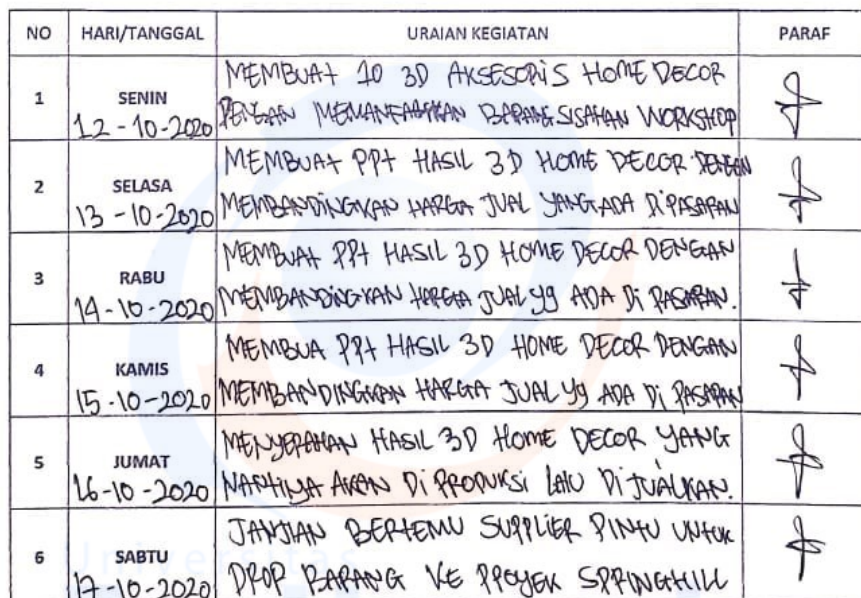 NO HARI/TANGGAL URAIAN KEGIATAN PARAF
1 SENIN 12-10-2020 MEMBUAT 10 3D AKSESORIS HOME DECOR
DENGAN MEMANFAATKAN BARANG SISAHAN WORKSHOP
2 SELASA 13-10-2020 MEMBUAT PPT HASIL 3D HOME DECOR DENGAN
MEMBANDINGKAN HARGA JUAL YANG ADA DI PASARAN
3 RABU 14-10-2020 MEMBUAT PPT HASIL 3D HOME DECOR DENGAN
MEMBANDINGKAN HARGA JUAL Yg ADA Di PASARAN.
4 KAMIS 15-10-2020 MEMBUA PPT HASIL 3D HOME DECOR DENGAN
MEMBANDINGKAN HARGA JUAL Yg ADA Di PASARAN
5 JUMAT 16-10-2020 MENYERAHAN HASIL 3D HOME DECOR YANG
NANTINYA AKAN Di PRODUKSI LALU Di JUALKAN.
6 SABTU 17-10-2020 JANJIAN BERTEMU SUPPLIER PINTU UNTUK
DROP BARANG KE PROYEK SPRINGHILL
Universitas